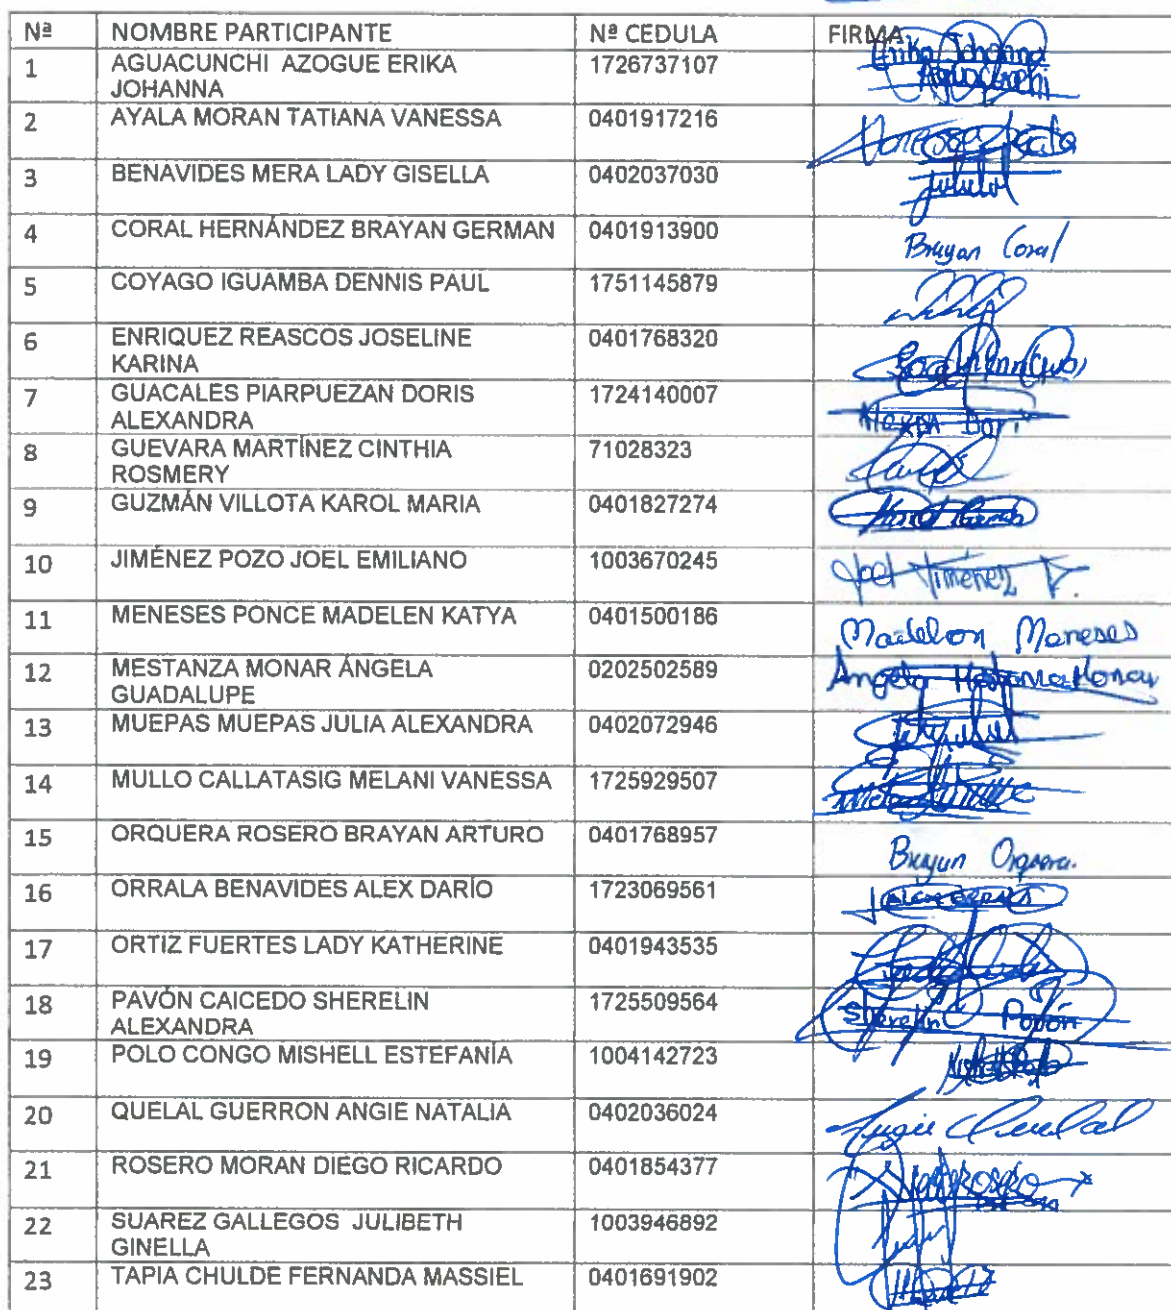 Nª NOMBRE PARTICIPANTE Nª CEDULA FIRMA
1 AGUACUNCHI AZOGUE ERIKA 1726737107 Erika Johanna
JOHANNA Aguacunchi
2 AYALA MORAN TATIANA VANESSA 0401917216 Vanessa Ayala
3 BENAVIDES MERA LADY GISELLA 0402037030
4 CORAL HERNÁNDEZ BRAYAN GERMAN 0401913900 Brayan Coral
5 COYAGO IGUAMBA DENNIS PAUL 1751145879
6 ENRIQUEZ REASCOS JOSELINE 0401768320
KARINA
7 GUACALES PIARPUEZAN DORIS 1724140007
ALEXANDRA
8 GUEVARA MARTÍNEZ CINTHIA 71028323
ROSMERY
9 GUZMÁN VILLOTA KAROL MARIA 0401827274
10 JIMÉNEZ POZO JOEL EMILIANO 1003670245 Joel Jiménez P.
11 MENESES PONCE MADELEN KATYA 0401500186 Madelen Meneses
12 MESTANZA MONAR ÁNGELA 0202502589 Angela Mestanza Monar
GUADALUPE
13 MUEPAS MUEPAS JULIA ALEXANDRA 0402072946
14 MULLO CALLATASIG MELANI VANESSA 1725929507
15 ORQUERA ROSERO BRAYAN ARTURO 0401768957 Brayan Orquera.
16 ORRALA BENAVIDES ALEX DARÍO 1723069561
17 ORTIZ FUERTES LADY KATHERINE 0401943535
18 PAVÓN CAICEDO SHERELIN 1725509564 Sherelin Pavón
ALEXANDRA
19 POLO CONGO MISHELL ESTEFANÍA 1004142723
20 QUELAL GUERRON ANGIE NATALIA 0402036024 Angie Quelal
21 ROSERO MORAN DIEGO RICARDO 0401854377
22 SUAREZ GALLEGOS JULIBETH 1003946892
GINELLA
23 TAPIA CHULDE FERNANDA MASSIEL 0401691902